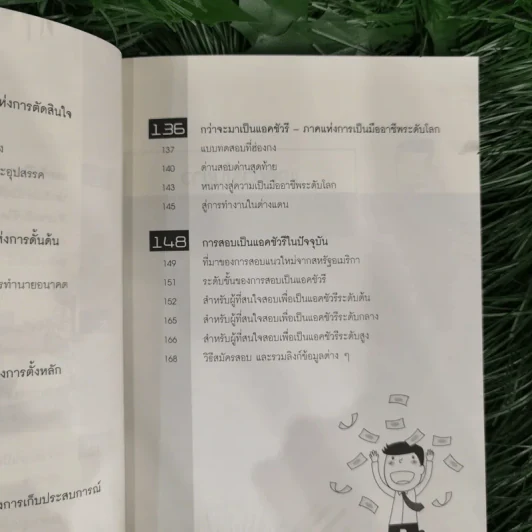 ห่งการตัดสินใจ
ะอุปสรรค
ห่งการดั้นด้น
ารทำนายอนาคต
งการตั้งหลัก
งการเก็บประสบการณ์
136 กว่าจะมาเป็นแอคชัวรี – ภาคแห่งการเป็นมืออาชีพระดับโลก
137 แบบทดสอบที่ฮ่องกง
140 ด่านสอบด่านสุดท้าย
143 หนทางสู่ความเป็นมืออาชีพระดับโลก
145 สู่การทำงานในต่างแดน
148 การสอบเป็นแอคชัวรีในปัจจุบัน
149 ที่มาของการสอบแนวใหม่จากสหรัฐอเมริกา
151 ระดับชั้นของการสอบเป็นแอคชัวรี
152 สำหรับผู้ที่สนใจสอบเพื่อเป็นแอคชัวรีระดับต้น
165 สำหรับผู้ที่สนใจสอบเพื่อเป็นแอคชัวรีระดับกลาง
166 สำหรับผู้ที่สนใจสอบเพื่อเป็นแอคชัวรีระดับสูง
168 วิธีสมัครสอบ และรวมลิงก์ข้อมูลต่าง ๆ